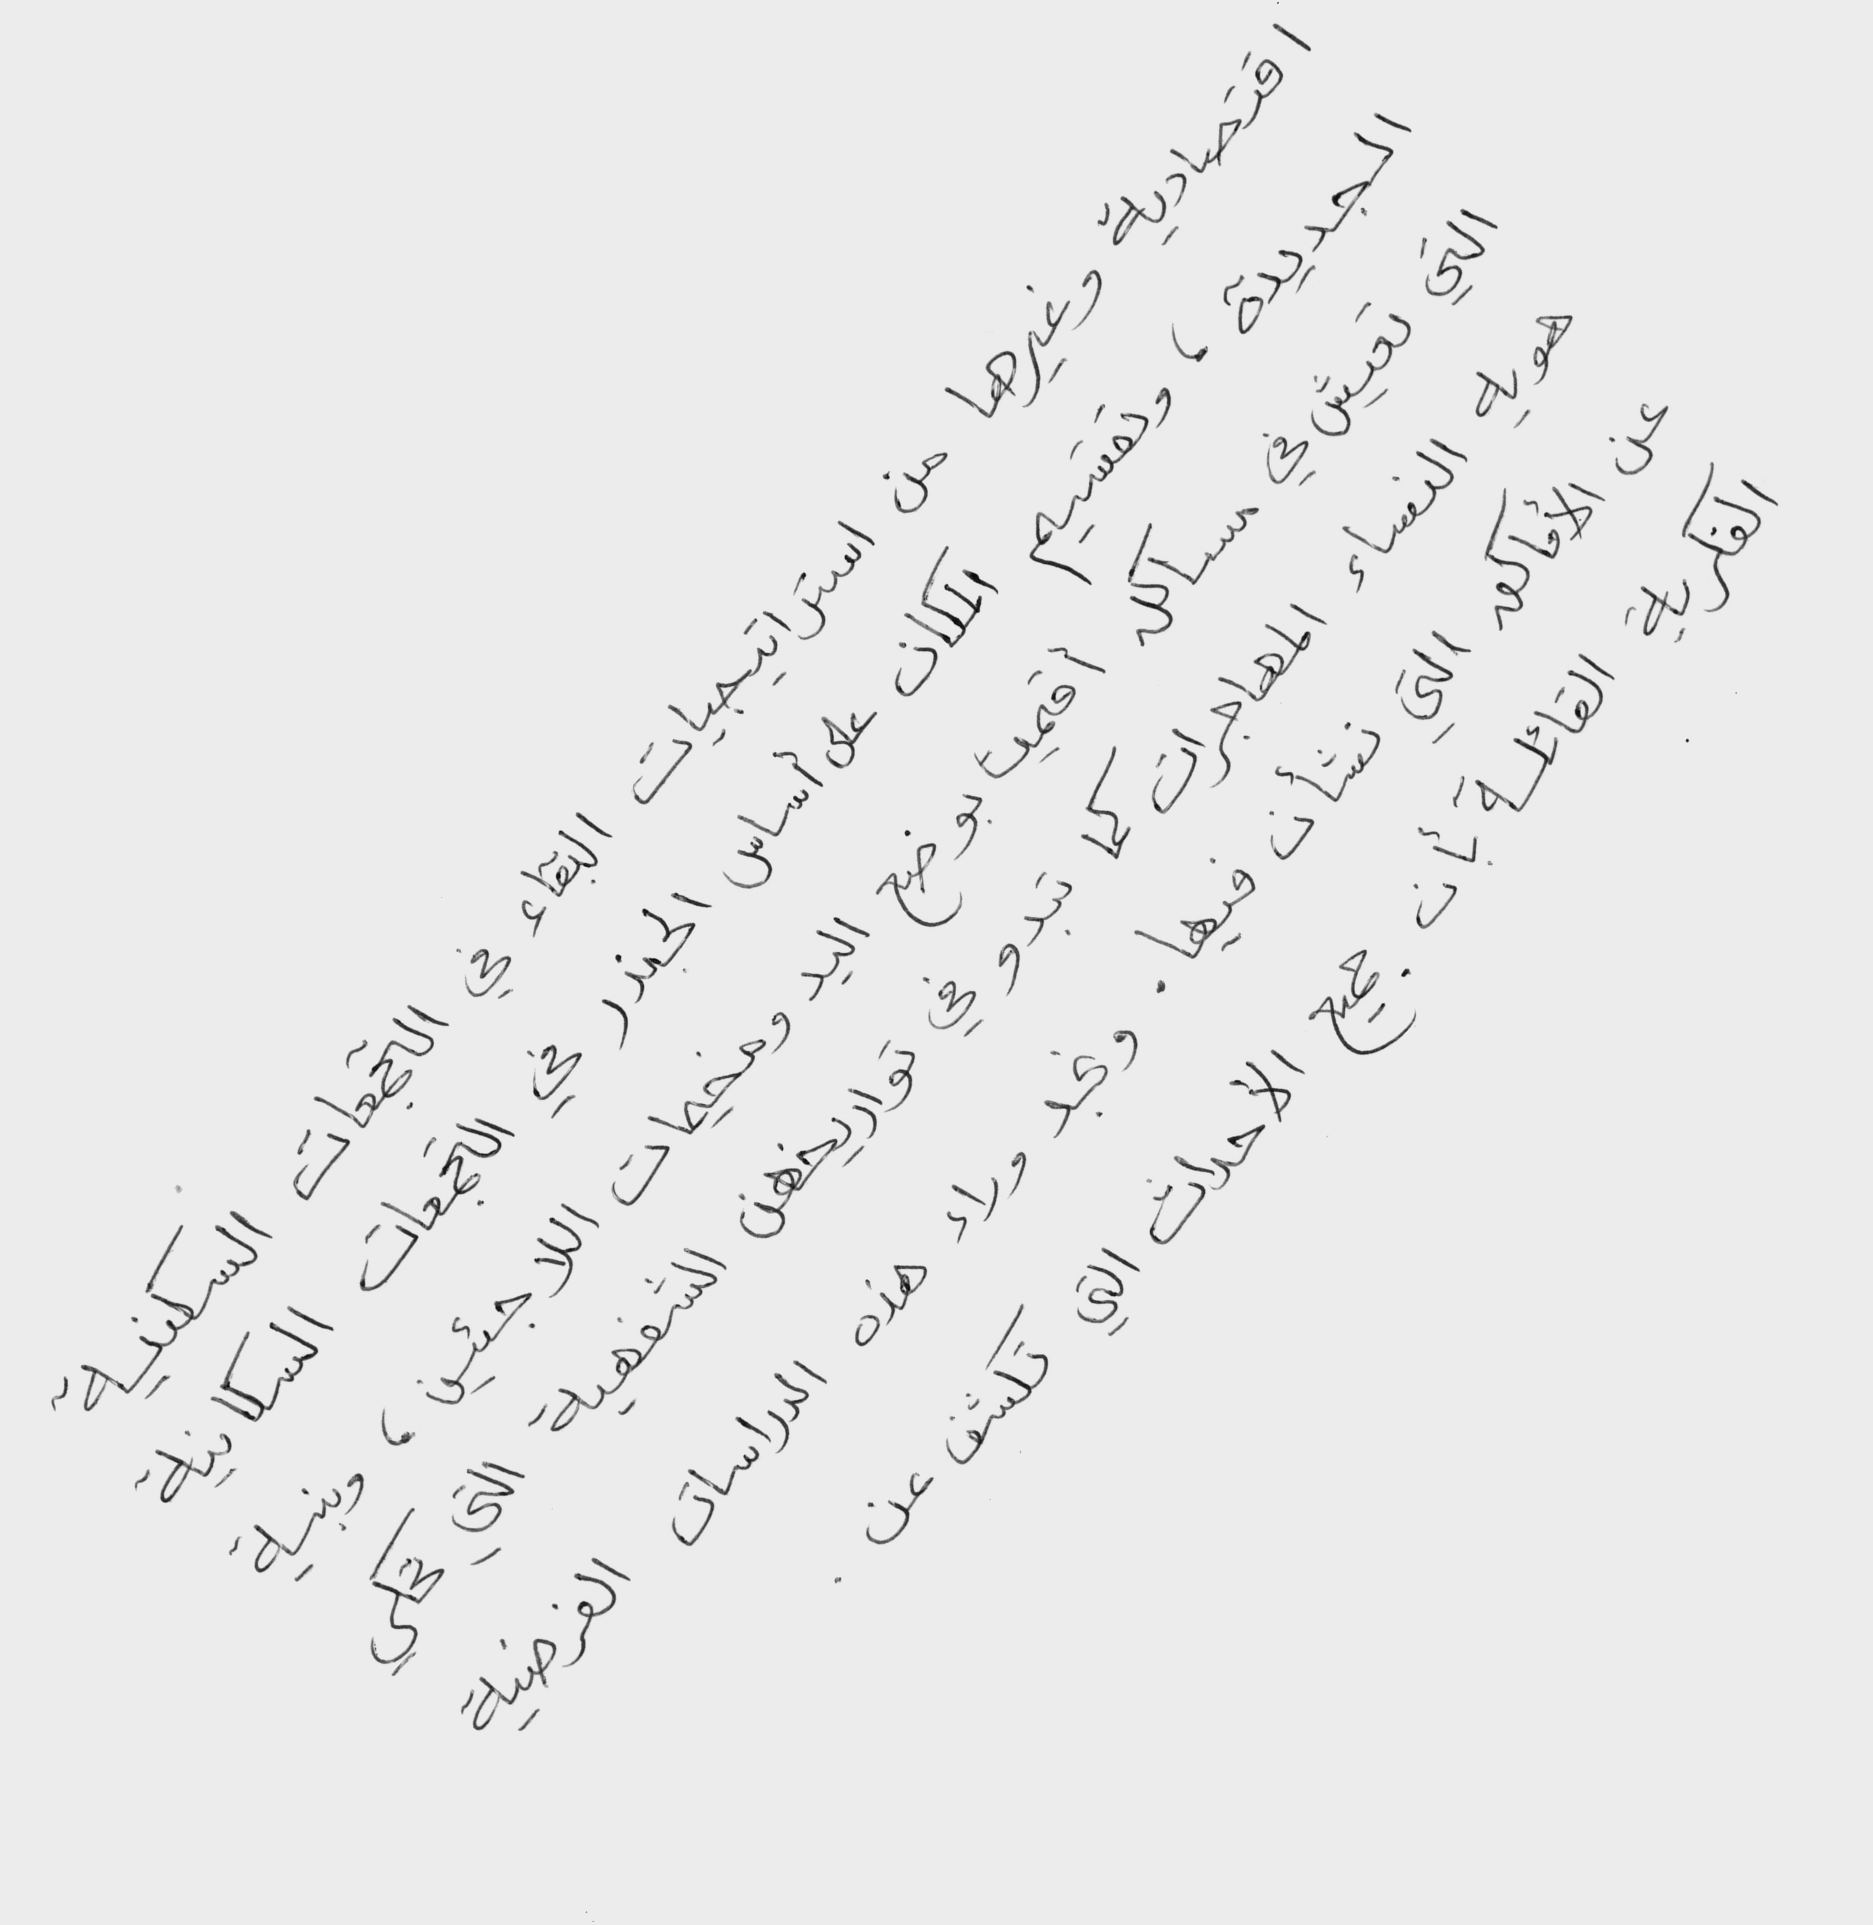 اقتصادية وغيرها من استراتيجيات البقاء في التجمعات السكنية
الجديدة، وتقسيم المكان على أساس الجندر في التجمعات السكانية
التي تعيش في مساكن أقيمت بوضع اليد ومخيمات اللاجئين، وبنية
هوية النساء المهاجرات كما تبدو في تواريخهن الشفهية التي تحكي
عن الأماكن التي نشأن فيها. ونجد وراء هذه الدراسات الفرضية
الفكرية القائلة بأن جميع الأحداث التي تكشف عن